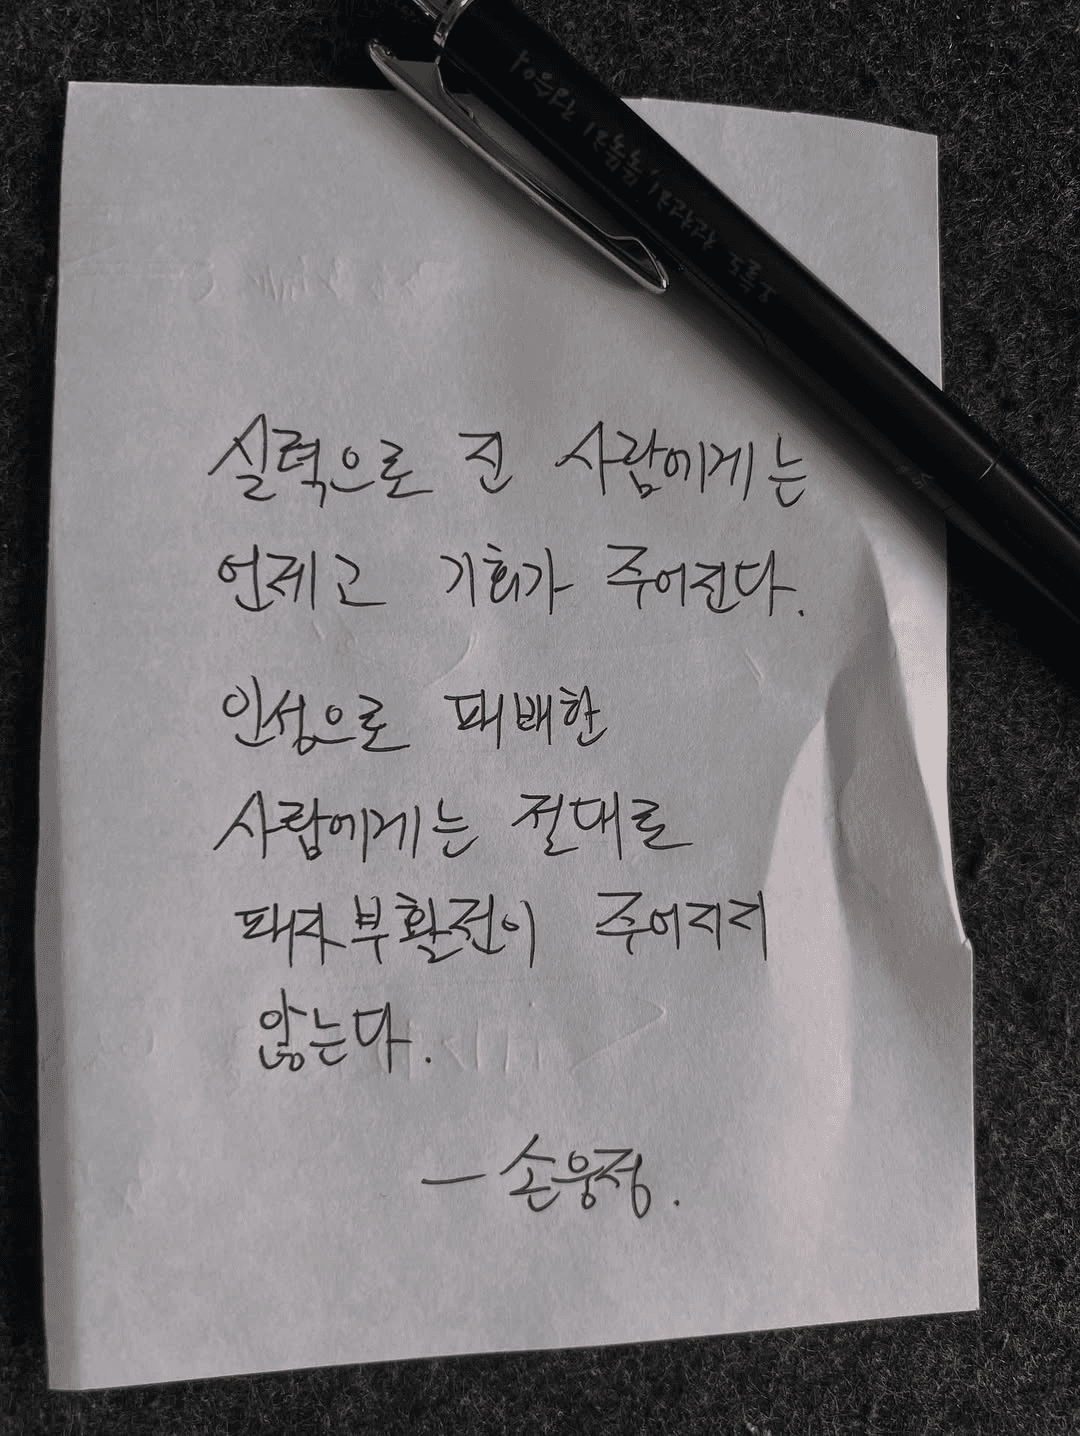 실력으로 진 사람에게는
언제고 기회가 주어진다.
인성으로 패배한
사람에게는 절대로
패자부활전이 주어지지
않는다.
— 손웅정.